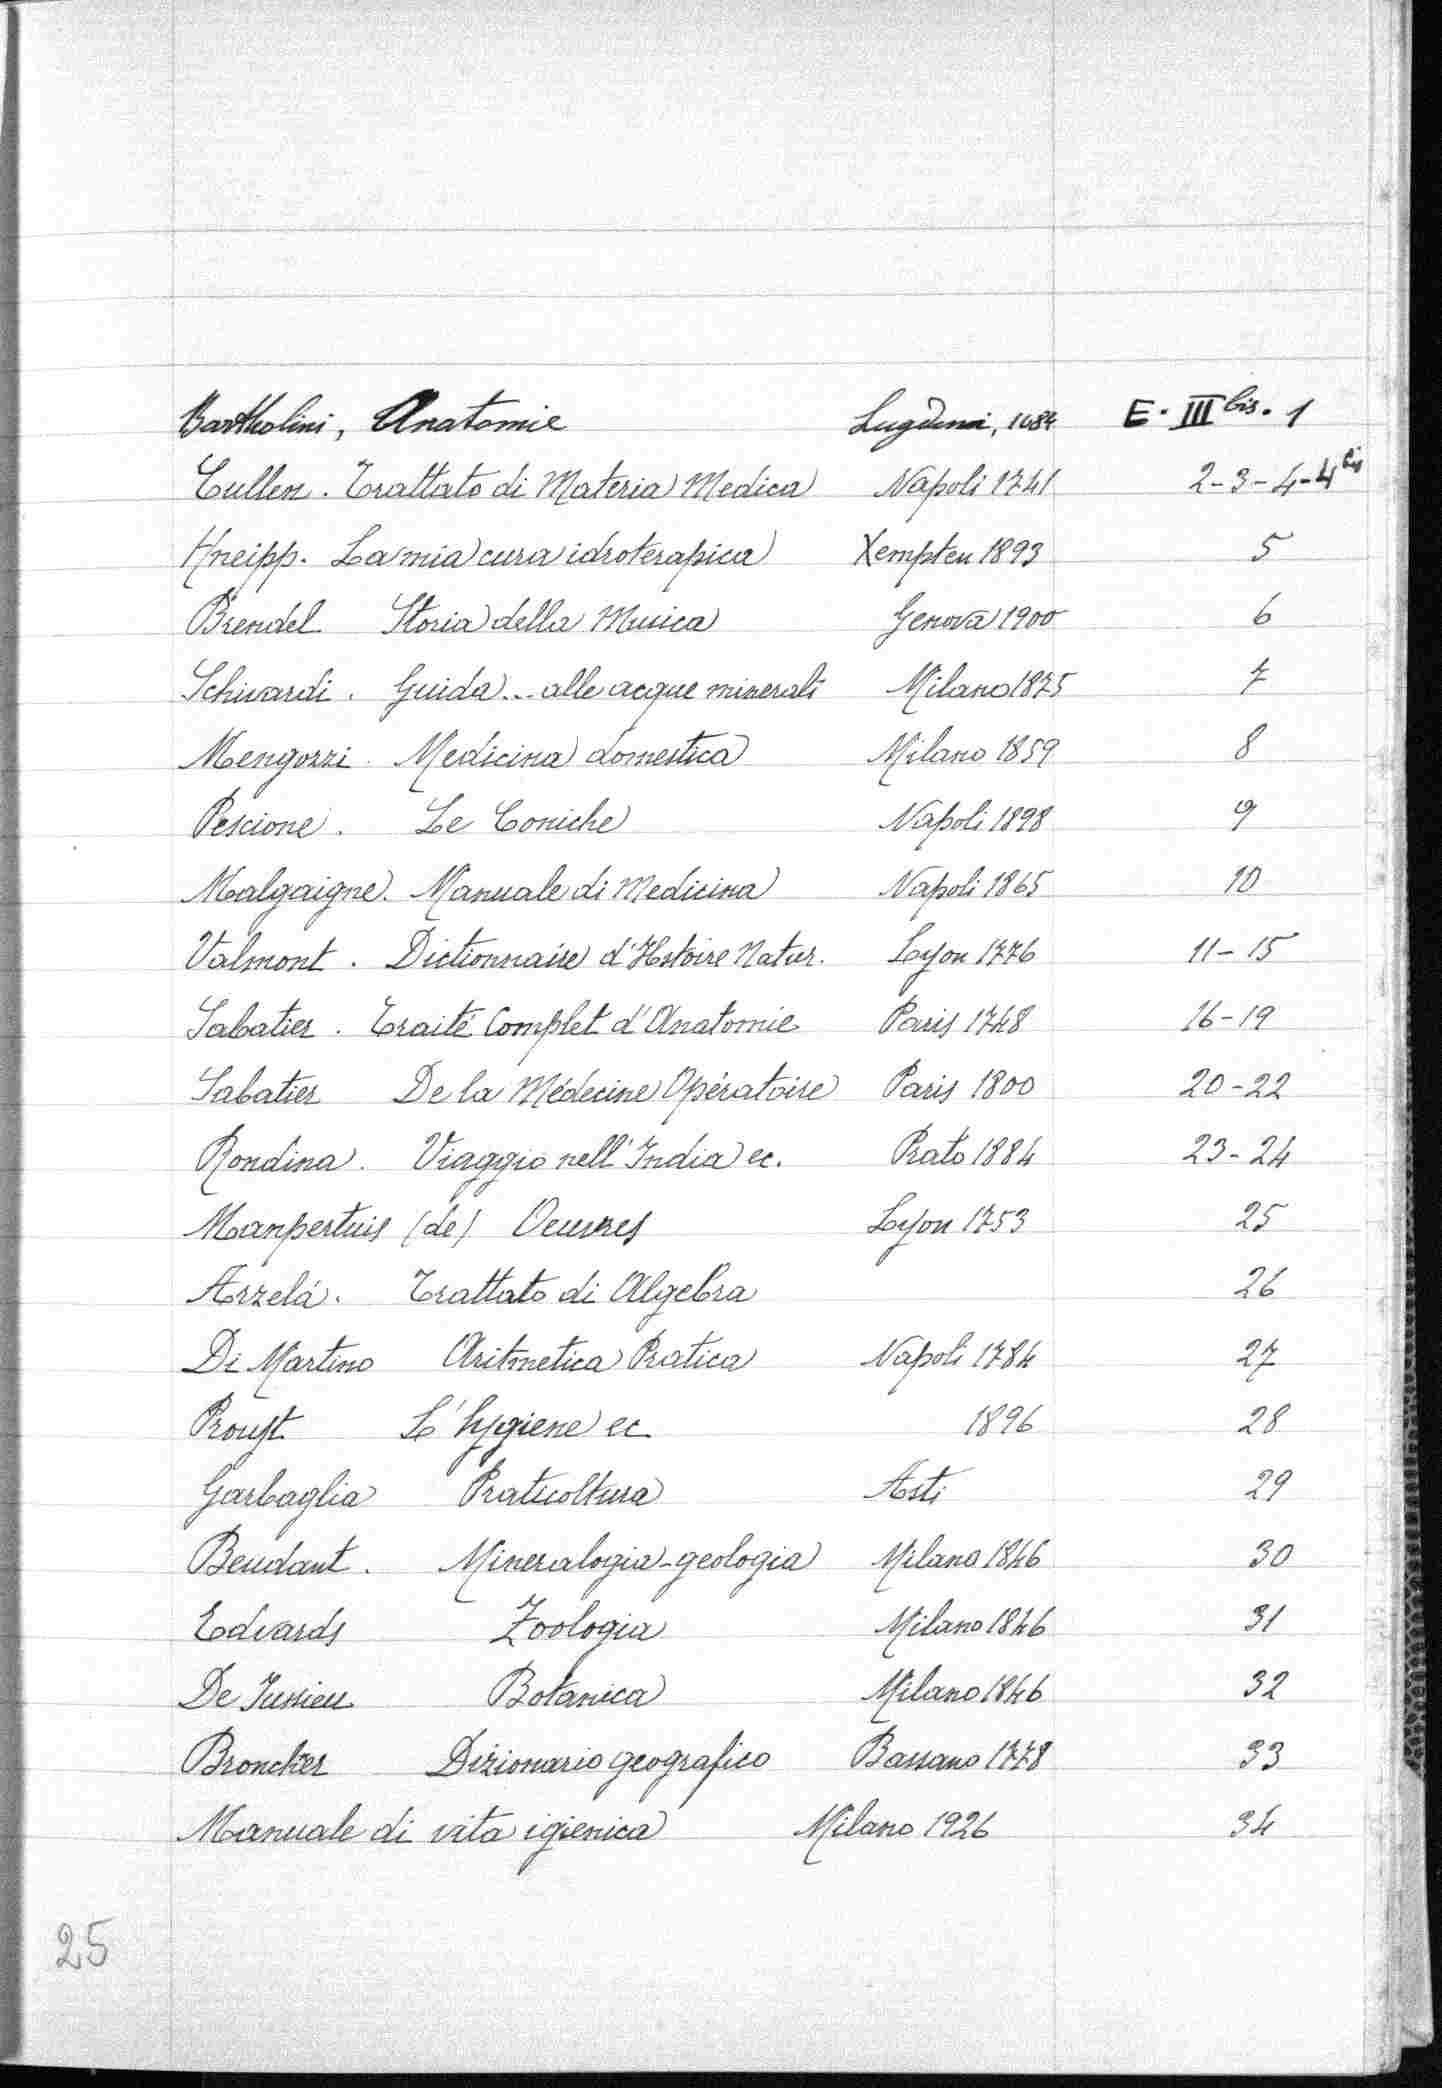 Bartholini, Anatomie Lugduni, 1684 E. III bis. 1
Cullen. Trattato di Materia Medica Napoli 1741 2-3-4-4 bis
Kneipp. La mia cura idroterapica Kempten 1893 5
Brendel Storia della Musica Genova 1900 6
Schivardi. Guida... alle acque minerali Milano 1875 7
Mengozzi. Medicina domestica Milano 1859 8
Pescione. Le Coniche Napoli 1898 9
Malgaigne. Manuale di Medicina Napoli 1865 10
Valmont. Dictionnaire d'Hstoire Natur. Lyon 1776 11-15
Sabatier. Traité Complet d'Anatomie Paris 1748 16-19
Sabatier De la Médecine Opératoire Paris 1800 20-22
Rondina. Viaggio nell'India ec. Prato 1884 23-24
Manpertuis (de) Oeuvres Lyon 1753 25
Arzelá. Trattato di Algebra 26
Di Martino Aritmetica Pratica Napoli 1784 27
Proust L'hygiene ec 1896 28
Garbaglia Praticoltura Asti 29
Beudant. Mineralogia-geologia Milano 1846 30
Edvards Zoologia Milano 1846 31
De Jussieu Botanica Milano 1846 32
Broncker Dizionario geografico Bassano 1778 33
Manuale di vita igienica Milano 1926 34
25